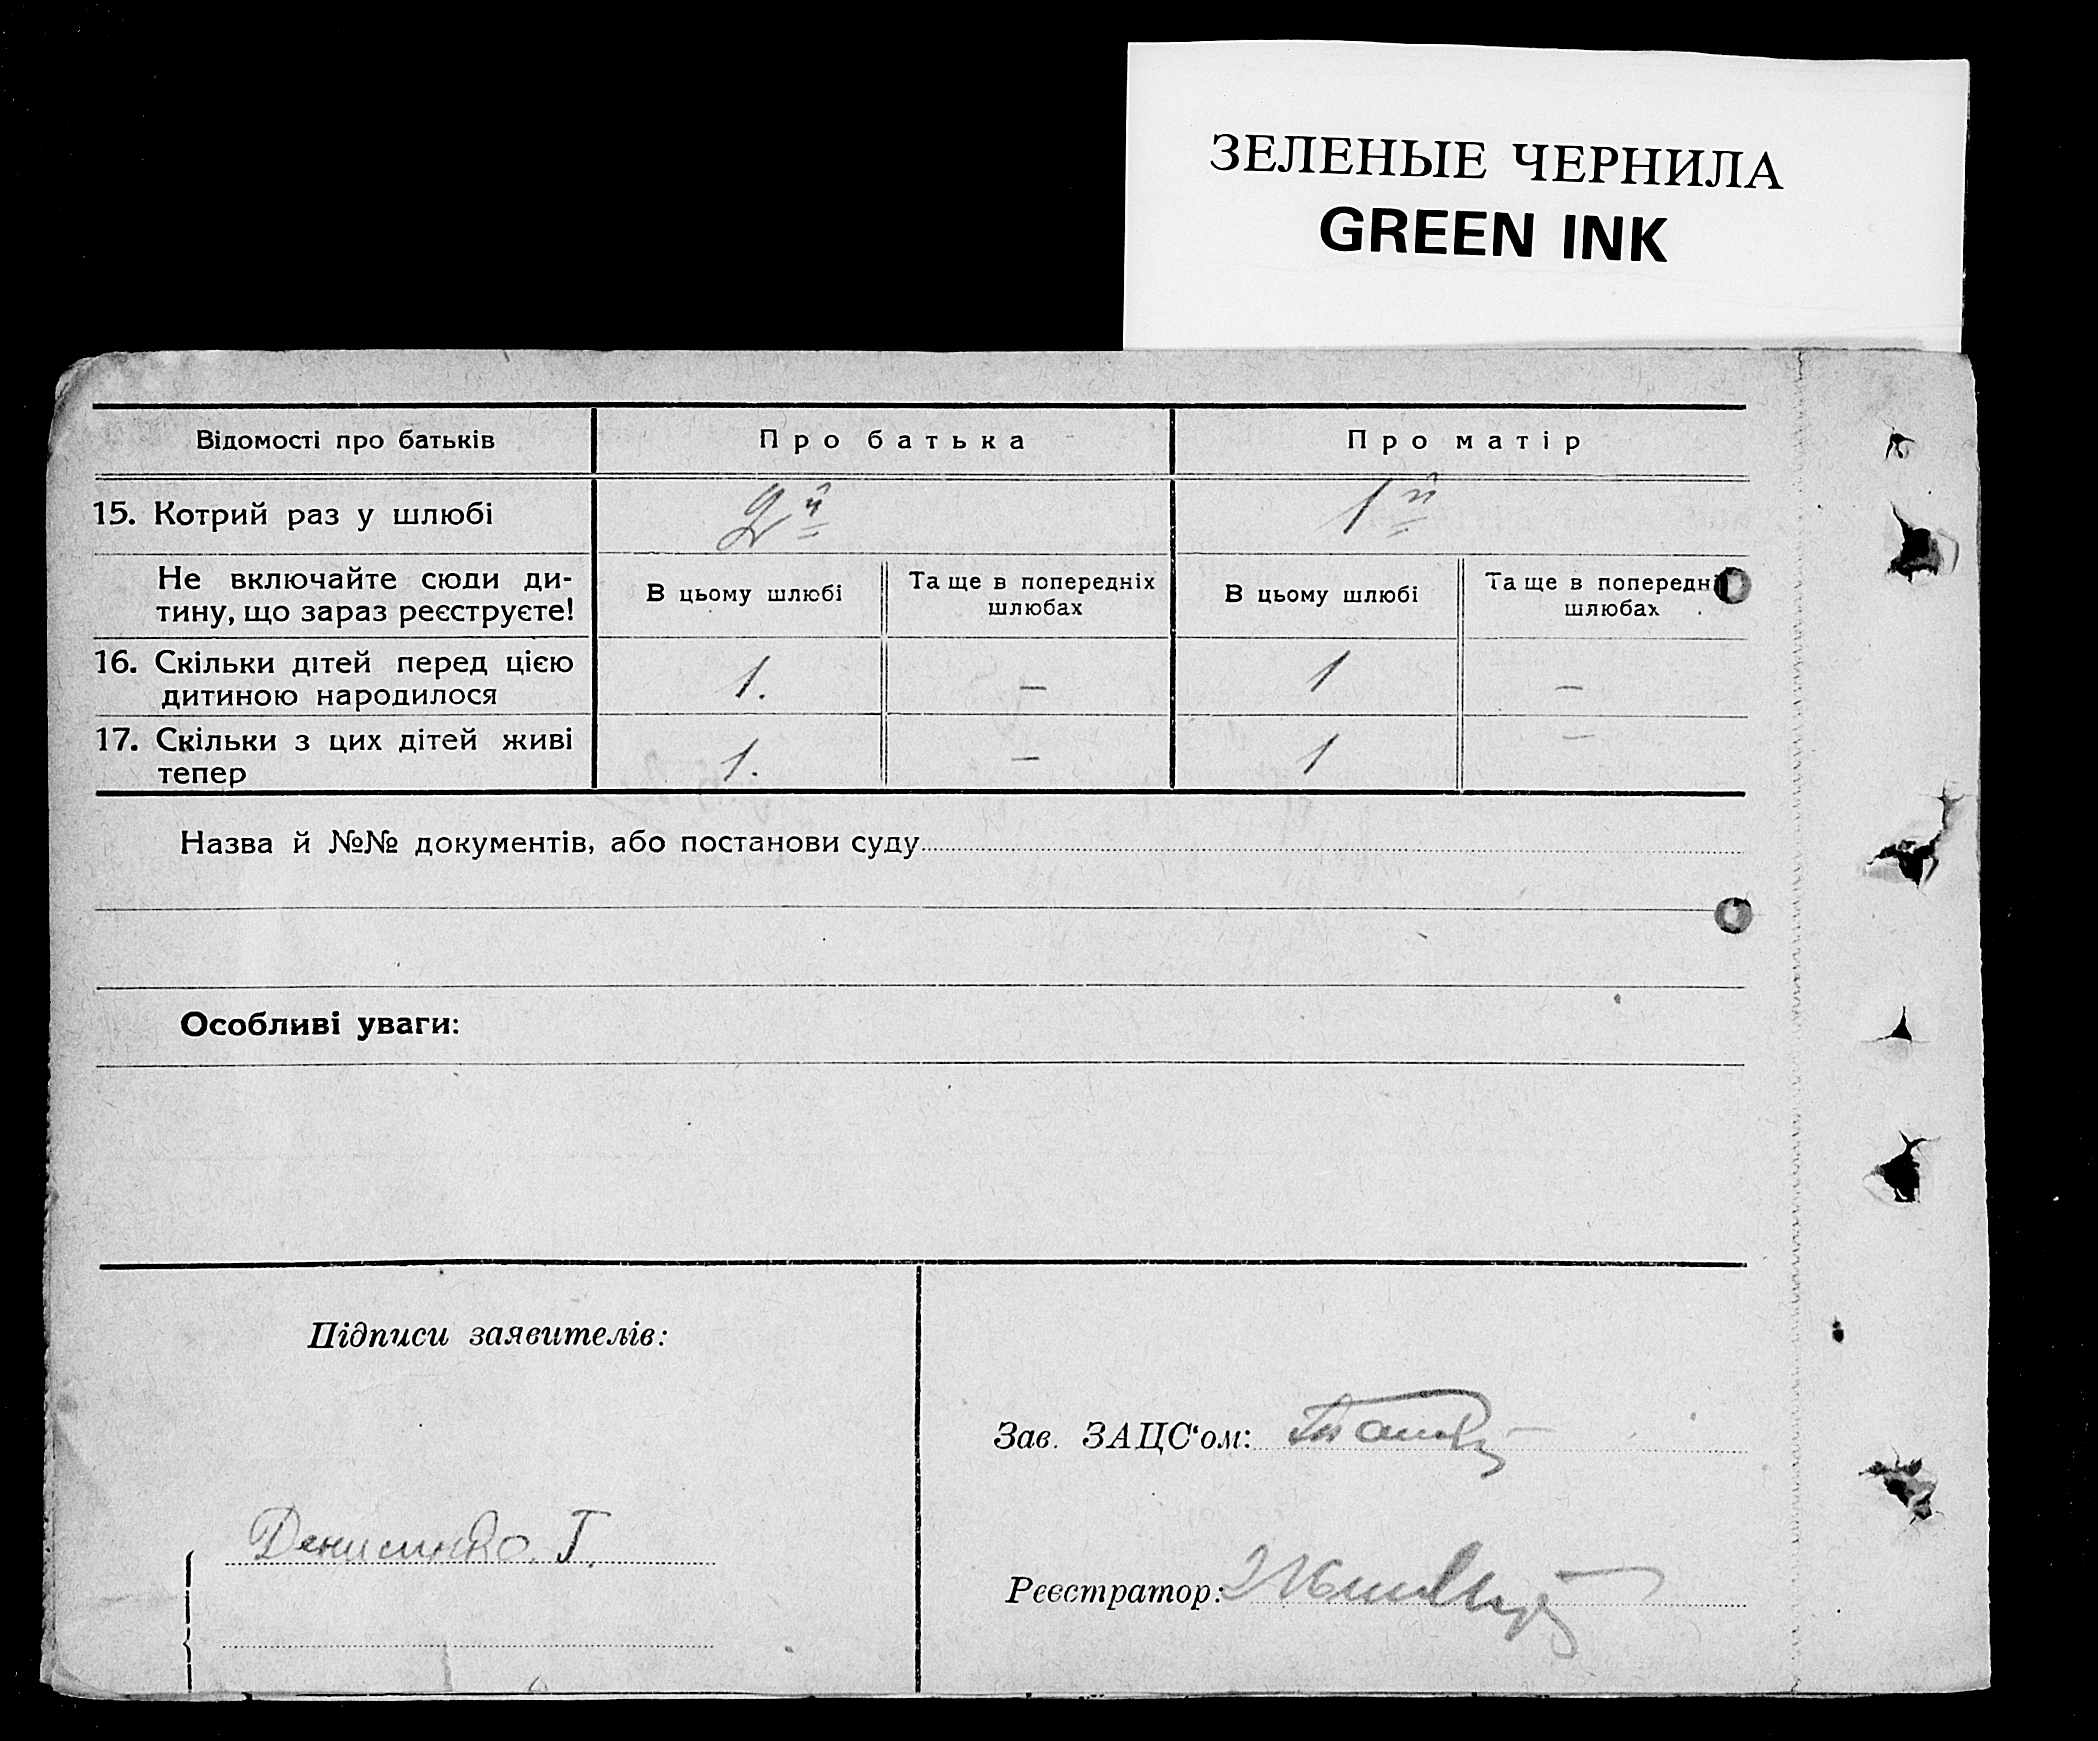 ЗЕЛЕНЫЕ ЧЕРНИЛА
GREEN INK
Відомості про батьків Про батька Про матір
15. Котрий раз у шлюбі 2й 1й
Не включайте сюди ди-
тину, що зараз реєструєте!
В цьому шлюбі
Та ще в попередніх
шлюбах
В цьому шлюбі
Та ще в попередн
шлюбах
16. Скільки дітей перед цією
дитиною народилося
1. – 1 –
17. Скільки з цих дітей живі
тепер
1. – 1 –
Назва й №№ документів, або постанови суду
Особливі уваги:
Підписи заявителів:
Зав. ЗАЦС‘ом:
Денисенко. Г.
Реєстратор: